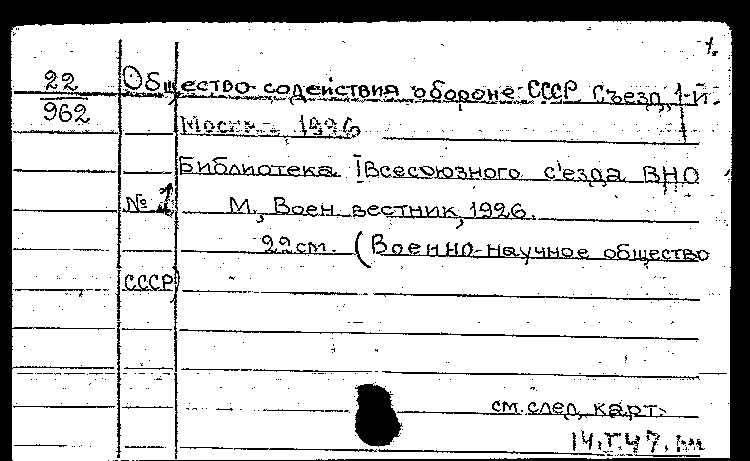 1.
22 Общество содействия обороне СССР Съезд, 1-й.
962 Москва 1926
Библиотека I Всесоюзного с'езда ВНО
№ 1 М., Воен. вестник, 1926.
22 см. (Военно-научное общество
СССР)
см. след. карт.
14.I.47.